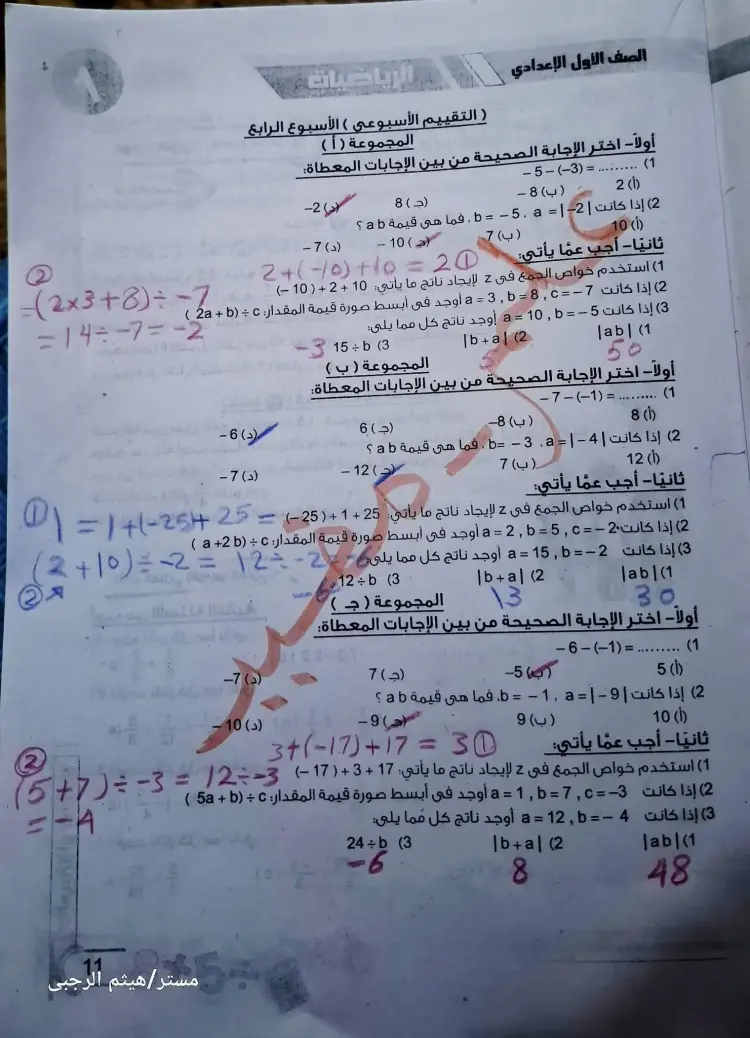 الصف الأول الإعدادي
الرياضيات
1
( التقييم الأسبوعى ) الأسبوع الرابع
المجموعة ( أ )
أولاً- اختر الإجابة الصحيحة من بين الإجابات المعطاة:
1) ......... = (3–) – 5 –
(أ) 2 (ب) 8 – (جـ) 8 (د) 2–
2) إذا كانت a = |–2| ، b = – 5 ، فما هى قيمة a b ؟
(أ) 10 (ب) 7 (جـ) 10 – (د) 7 –
ثانيًا- أجب عمَّا يأتي:
2+(-10)+10 = 2 ①
1) استخدم خواص الجمع فى z لإيجاد ناتج ما يأتي: 10 + 2 + (10 –)
②
2) إذا كانت a = 3 , b = 8 , c = – 7 أوجد فى أبسط صورة قيمة المقدار: (2a + b) ÷ c
=(2×3+8)÷-7
= 14÷-7= -2
3) إذا كانت a = 10 , b = – 5 أوجد ناتج كل مما يلى:
1) |ab| 2) |b + a| 3) 15 ÷ b
50 5 -3
المجموعة ( ب )
أولاً- اختر الإجابة الصحيحة من بين الإجابات المعطاة:
1) ......... = (1–) – 7 –
(أ) 8 (ب) 8– (جـ) 6 (د) 6 –
2) إذا كانت a = |– 4| ، b= – 3 ، فما هى قيمة a b ؟
(أ) 12 (ب) 7 (جـ) 12 – (د) 7 –
ثانيًا- أجب عمَّا يأتي:
1) استخدم خواص الجمع فى z لإيجاد ناتج ما يأتي: 25 + 1 + (25 –)
① 1 = 1+(-25)+25 =
2) إذا كانت a = 2 , b = 5 , c = – 2 أوجد فى أبسط صورة قيمة المقدار: ( a +2 b) ÷ c
(2+10)÷-2 = 12÷-2=-6
②
3) إذا كانت a = 15 , b = – 2 أوجد ناتج كل مما يلى:
1) |ab| 2) |b + a| 3) 12 ÷ b
30 13 -6
المجموعة ( جـ )
أولاً- اختر الإجابة الصحيحة من بين الإجابات المعطاة:
1) ......... = (1–) – 6 –
(أ) 5 (ب) 5– (جـ) 7 (د) 7–
2) إذا كانت a = |– 9| ، b = – 1 ، فما هى قيمة a b ؟
(أ) 10 (ب) 9 (جـ) 9 – (د) 10 –
ثانيًا- أجب عمَّا يأتي:
3+(-17)+17 = 3 ①
1) استخدم خواص الجمع فى z لإيجاد ناتج ما يأتي: 17 + 3 + (17 –)
②
2) إذا كانت a = 1 , b = 7 , c = –3 أوجد فى أبسط صورة قيمة المقدار: ( 5a + b) ÷ c
(5+7)÷-3 = 12÷-3
= -4
3) إذا كانت a = 12 , b = – 4 أوجد ناتج كل مما يلى:
1) |ab| 2) |b + a| 3) 24 ÷ b
48 8 -6
11
مستر/هيثم الرجبى